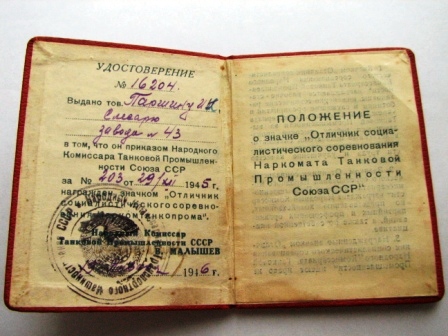 УДОСТОВЕРЕНИЕ
№ 16204.
Выдано тов. Паршину
Слесарю
завода № 43
в том, что он приказом Народного
Комиссара Танковой Промышлен-
ности Союза ССР
за № 703 от 29/XII 1945 г.
награжден значком "Отличник
социалистического соревно-
вания Наркомтанкопрома".
Народный Комиссар
Танковой Промышленности СССР
МАЛЫШЕВ
1946 г.
ПОЛОЖЕНИЕ
о значке „Отличник социа-
листического соревнования
Наркомата Танковой
Промышленности
Союза ССР"